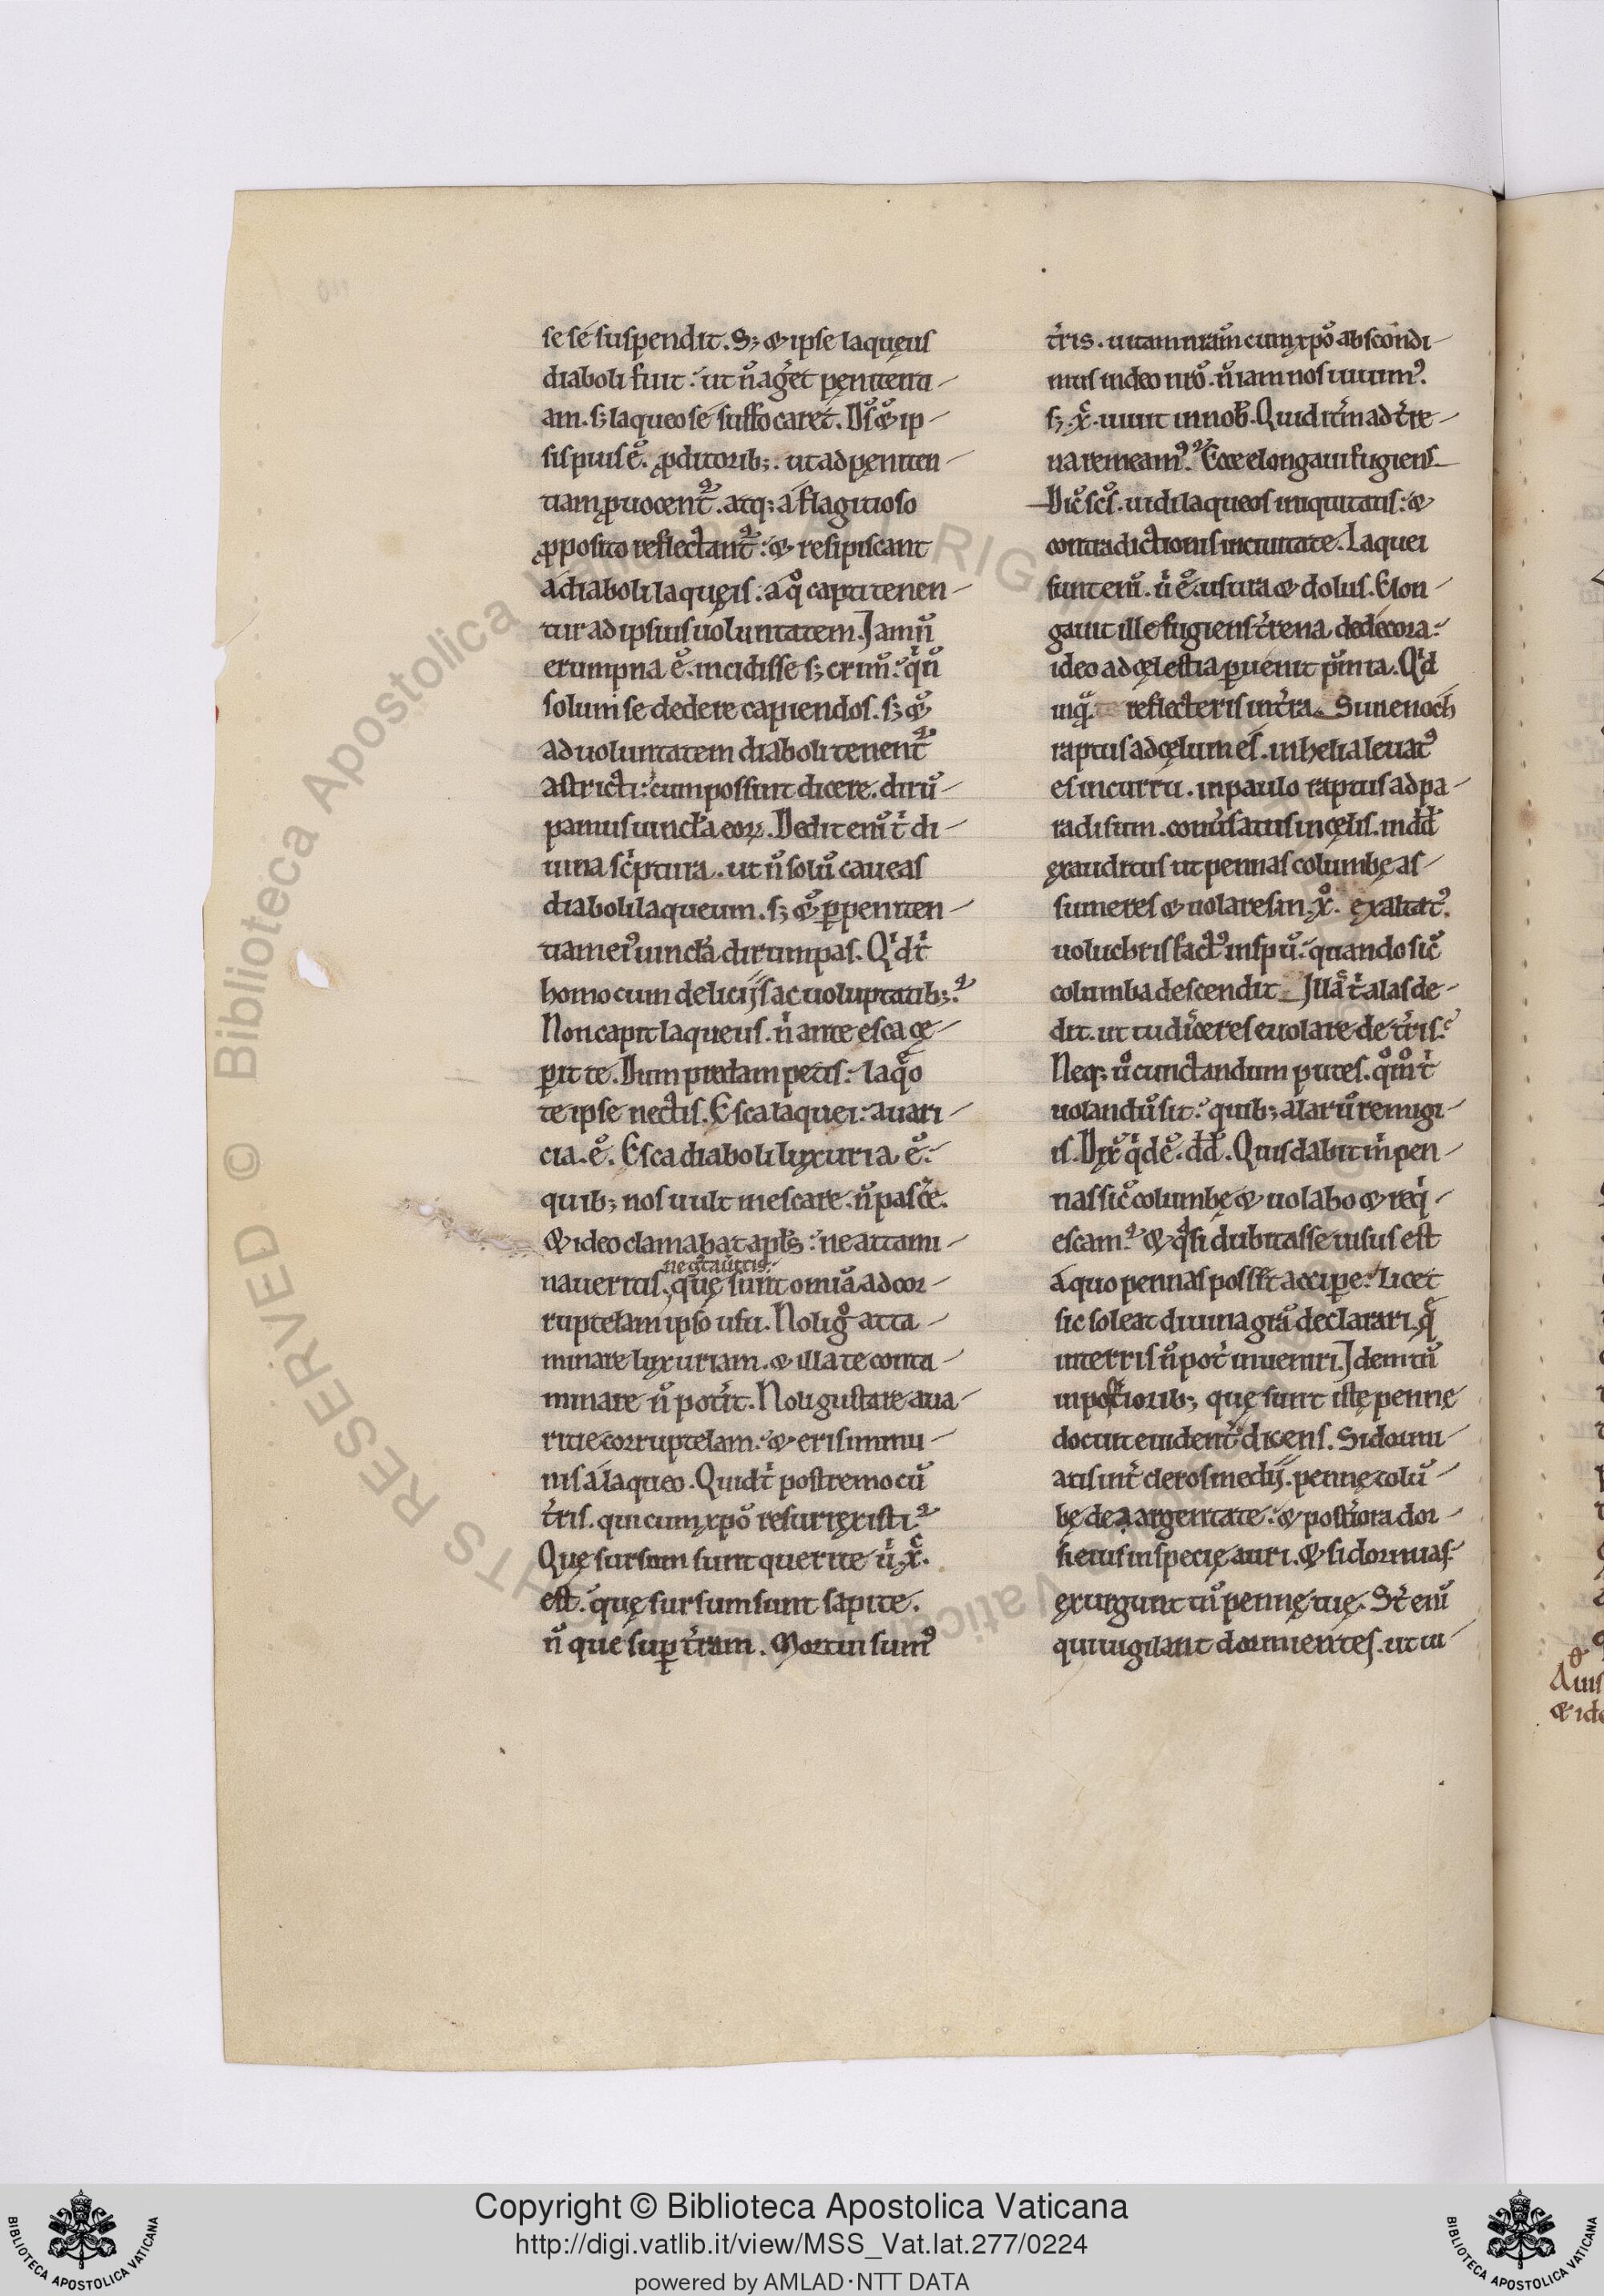 se se suspendit. S; & ipse laqueus
diaboli fuit: ut n̄ ag̃et penitenti-
am. s; laqueo se suffocaret. D̄s & ip-
sis pius ē. p̱ditorib;. ut ad peniten-
tiam p̱uocent᷑. atq; a flagitioso
p̱posito reflectant᷑: & resipiscant
a diaboli laqueis. a q̊ capti tenen-
tur ad ipsius uoluntatem. Jam ū
erumpna ē. incidisse s; crim̄: q̇ n̄
solum se dedere capiendos. s; &
ad uoluntatem diaboli tenent᷑
astricti: cum possunt dicere. dirū-
pamus uincl̄a eoꝝ. Dedit eni t̍ di-
uina sc̍ptura. ut n̄ solū caueas
diaboli laqueum. s; & p̱ peniten-
tiam ei᷒ uincl̄a dirumpas. Q'd t̍
homo cum delicijs ac uoluptatib;.
Non capit laqueus. n̍ ante esca ce-
p̱it te. Dum predam petis: laq̊o
te ipse nectis. Esca laquei: auari-
cia. ē. Esca diaboli luxuria ē.
quib; nos uult inescare. n̄ pasc̍e.
& ideo clamabat apl̄s: ne attami-
negtaũitis:
naueritis, quę sunt omia ad cor-
ruptelam ipso usu. Noli g̊ atta-
minare luxuriam. & illa te conta-
minare n̄ pot̍it. Noli gustare aua-
ritie corruptelam: & eris immu-
nis a laqueo. Quid t̍ postremo cū
t̍ris. qui cum xp̄o resurrexisti.
Que sursum sunt querite u̍. x̄.
est. quę sursum sunt sapite.
n̄ que sup̱ t̍ram. Mortui sum᷒
t̍ris. uitam nr̄am cum xp̄o abscondi-
mus in deo nr̄o. n̄ iam nos uiuim᷒.
s;. x̄. uiuit in nob̄. Quid it̍m ad t̍re-
na remeam᷒. Ecce elongaui fugiens
Dic̄ sc̄s. uidi laqueos iniquitatis: &
contradictionis in ciuitate. Laquei
sunt eni. u̍ ē. usura & dolus. Elon-
gauit ille fugiens t̍rena dedecora:
ideo ad cęlestia p̱uenit p̄mia. Q'd
inq̄. reflecteris in t̍ra. S; in enoch
raptus ad cęlum es. in helia leuat᷒
es in curru. in paulo raptus ad pa-
radisum. conu̍satus in cęlis. in dd̄
exauditus ut pennas columbę as-
sumeres & uolares. in. x̄. exaltat᷒.
uoluchris fact᷒ in sp̄u: quando sic̄
columba descendit. Jlla t̍ alas de-
dit. ut tu dic̍eres euolare de t̍ris.
Neq; ū cunctandum putes. q̊m̊ t̍
uolandū sit: quib; alarū remigi-
is. Dix̄ q̍de. dd̄. Quis dabit m̍ pen-
nas sic̄ columbę & uolabo & req̍-
escam. & q̄si dubitasse uisus est
a quo pennas posset accip̱e: licet
sic soleat diuina gr̄a declarari. q̄
in terris n̄ pot̍ inueniri. Jdem tn̄
in post̍iorib; quę sunt istę pennę
docuit euident᷑ dicens. Si dormi-
atis int̍ cleros medij. pennę colū-
bę deargentate: & post̍iora dor-
si eius in specię auri. & si dormias.
exurgunt tn̄ pennę tuę. St̍ eni
qui uigilant dormientes. ut ui-